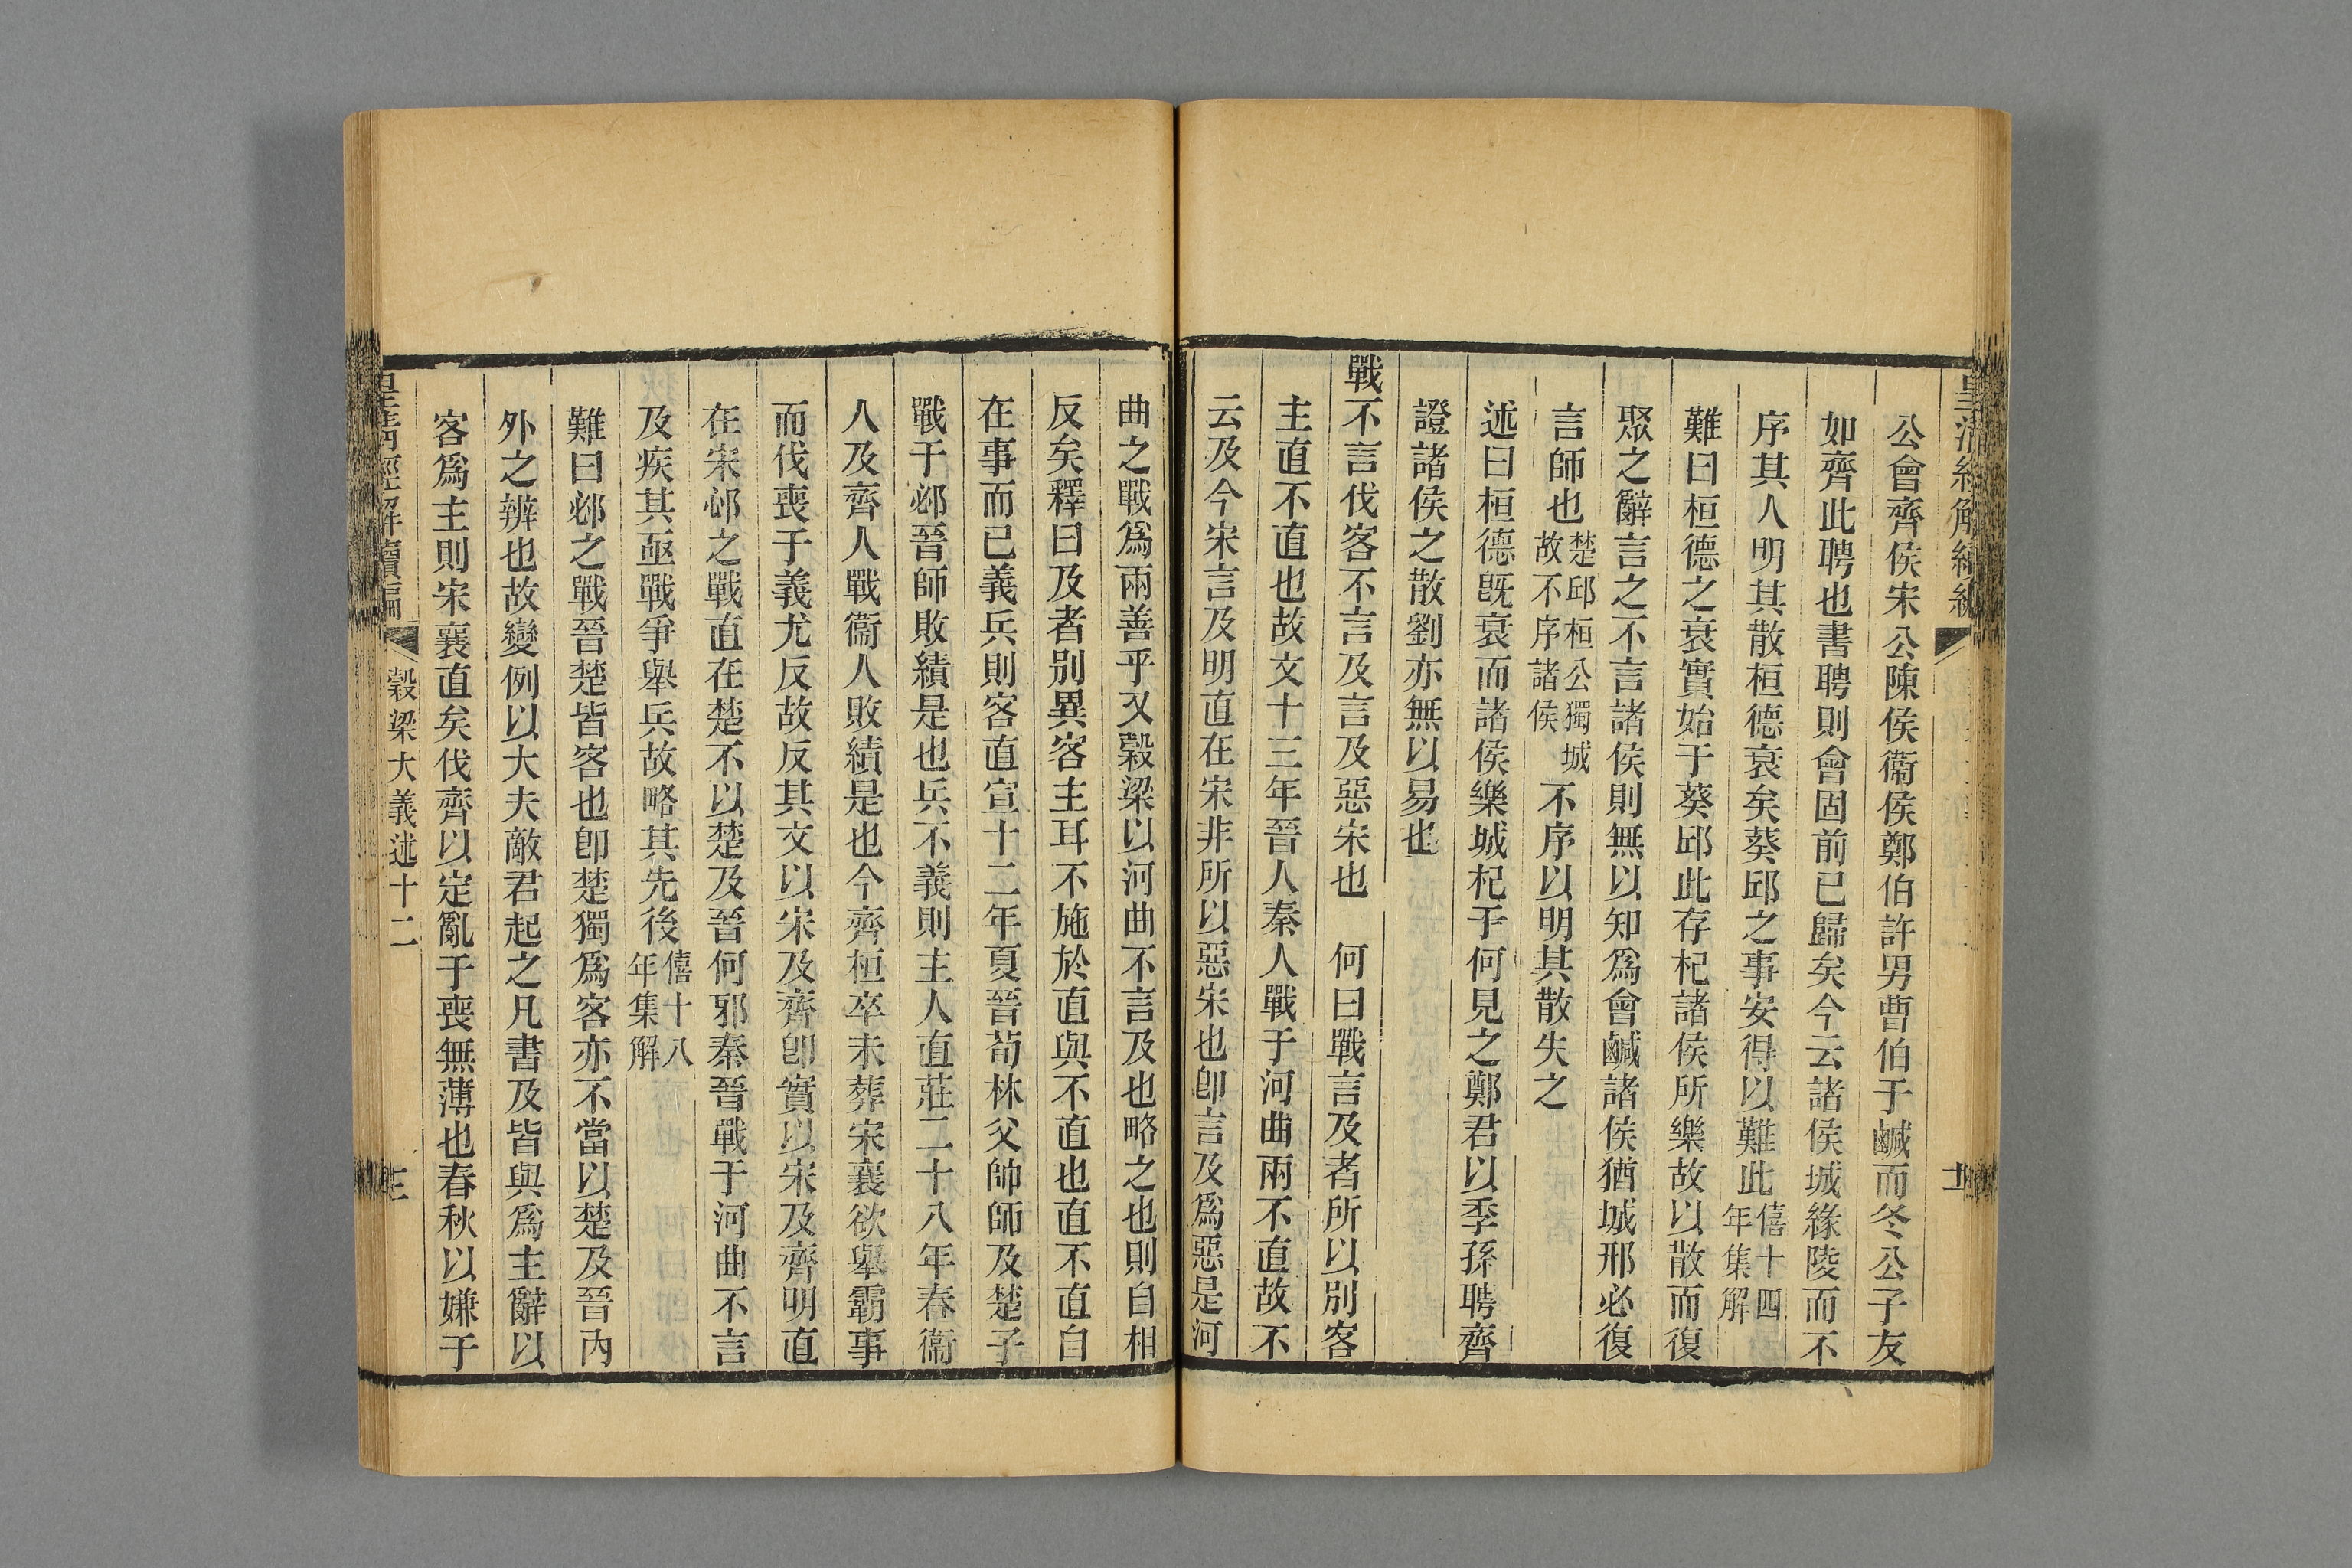 公會齊侯宋公陳侯衞侯鄭伯許男曹伯于鹹而冬公子友
如齊此聘也書聘則會固前已歸矣今云諸侯城緣陵而不
序其人明其散桓德衰矣葵邱之事安得以難此僖十四年集解
難曰桓德之衰實始于葵邱此存杞諸侯所樂故以散而復
聚之辭言之不言諸侯則無以知爲會鹹諸侯猶城邢必復
言師也楚邱桓公獨城故不序諸侯不序以明其散失之
述曰桓德旣衰而諸侯樂城杞于何見之鄭君以季孫聘齊
證諸侯之散劉亦無以易也
戰不言伐客不言及言及惡宋也　何曰戰言及者所以別客
主直不直也故文十三年晉人秦人戰于河曲兩不直故不
云及今宋言及明直在宋非所以惡宋也卽言及爲惡是河
曲之戰爲兩善乎又穀梁以河曲不言及也略之也則自相
反矣釋曰及者別異客主耳不施於直與不直也直不直自
在事而已義兵則客直宣十二年夏晉荀林父帥師及楚子
戰于邲晉師敗績是也兵不義則主人直莊二十八年春衞
人及齊人戰衞人敗績是也今齊桓卒未葬宋襄欲舉霸事
而伐喪于義尤反故反其文以宋及齊卽實以宋及齊明直
在宋邲之戰直在楚不以楚及晉何邪秦晉戰于河曲不言
及疾其亟戰爭舉兵故略其先後僖十八年集解
難曰邲之戰晉楚皆客也卽楚獨爲客亦不當以楚及晉內
外之辨也故變例以大夫敵君起之凡書及皆與爲主辭以
客爲主則宋襄直矣伐齊以定亂于喪無薄也春秋以嫌于
皇清經解續編
穀梁大義述十二